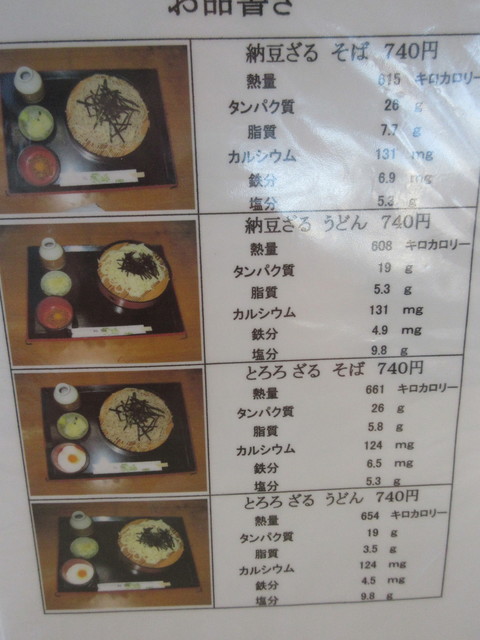 お品書き
納豆ざる そば 740円
熱量 615 キロカロリー
タンパク質 26 g
脂質 7.7 g
カルシウム 131 mg
鉄分 6.9 mg
塩分 5.3 g
納豆ざる うどん 740円
熱量 608 キロカロリー
タンパク質 19 g
脂質 5.3 g
カルシウム 131 mg
鉄分 4.9 mg
塩分 9.8 g
とろろ ざる そば 740円
熱量 661 キロカロリー
タンパク質 26 g
脂質 5.8 g
カルシウム 124 mg
鉄分 6.5 mg
塩分 5.3 g
とろろ ざる うどん 740円
熱量 654 キロカロリー
タンパク質 19 g
脂質 3.5 g
カルシウム 124 mg
鉄分 4.5 mg
塩分 9.8 g